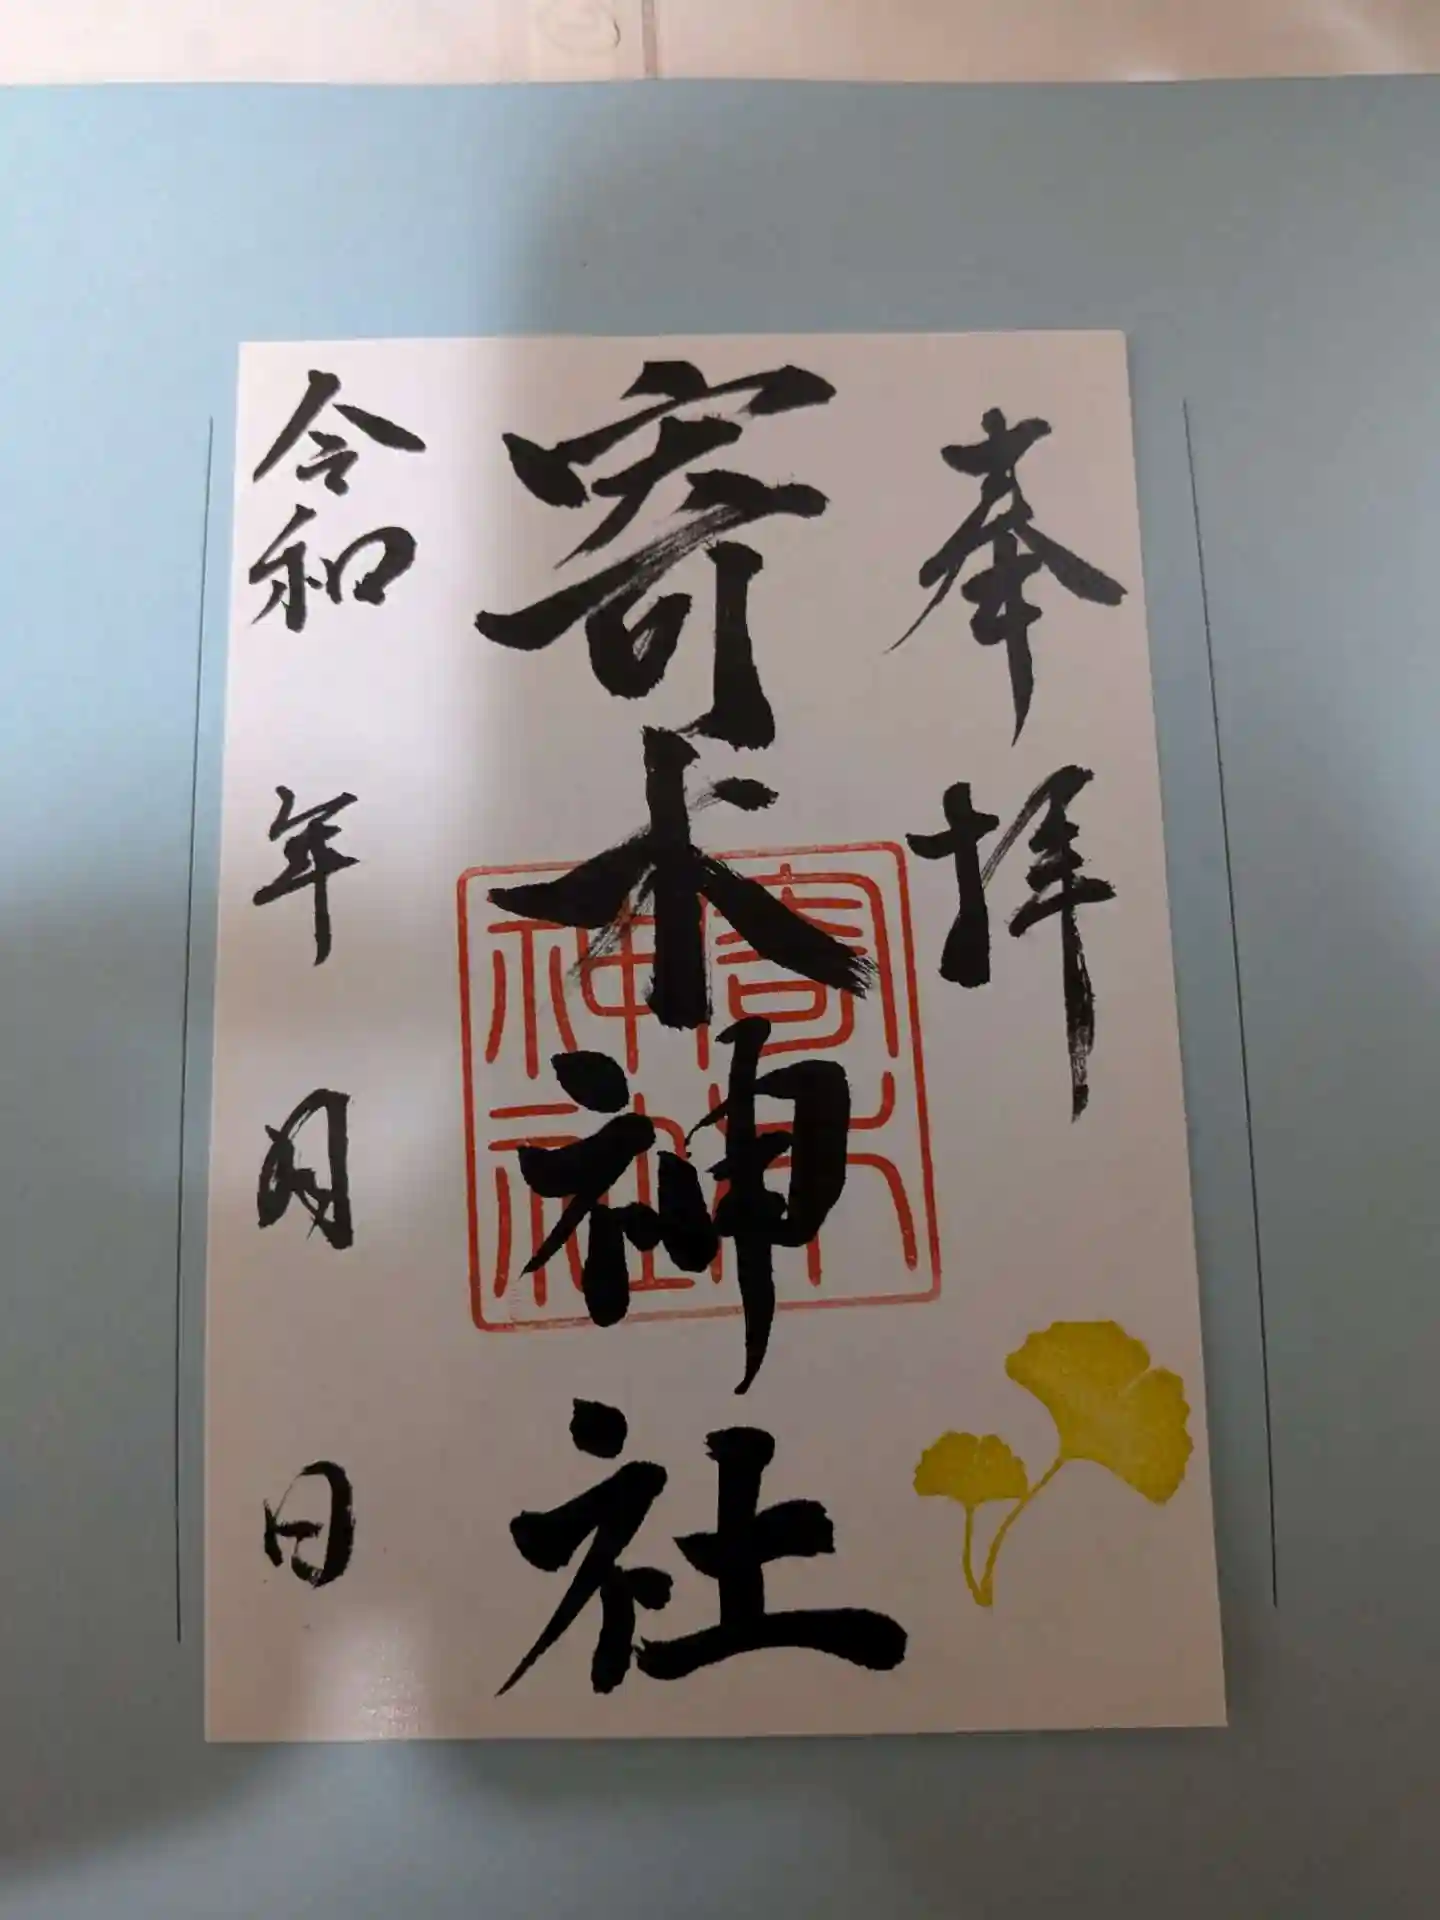 奉拝
寄木神社
寄木
神社
令和 年 月 日